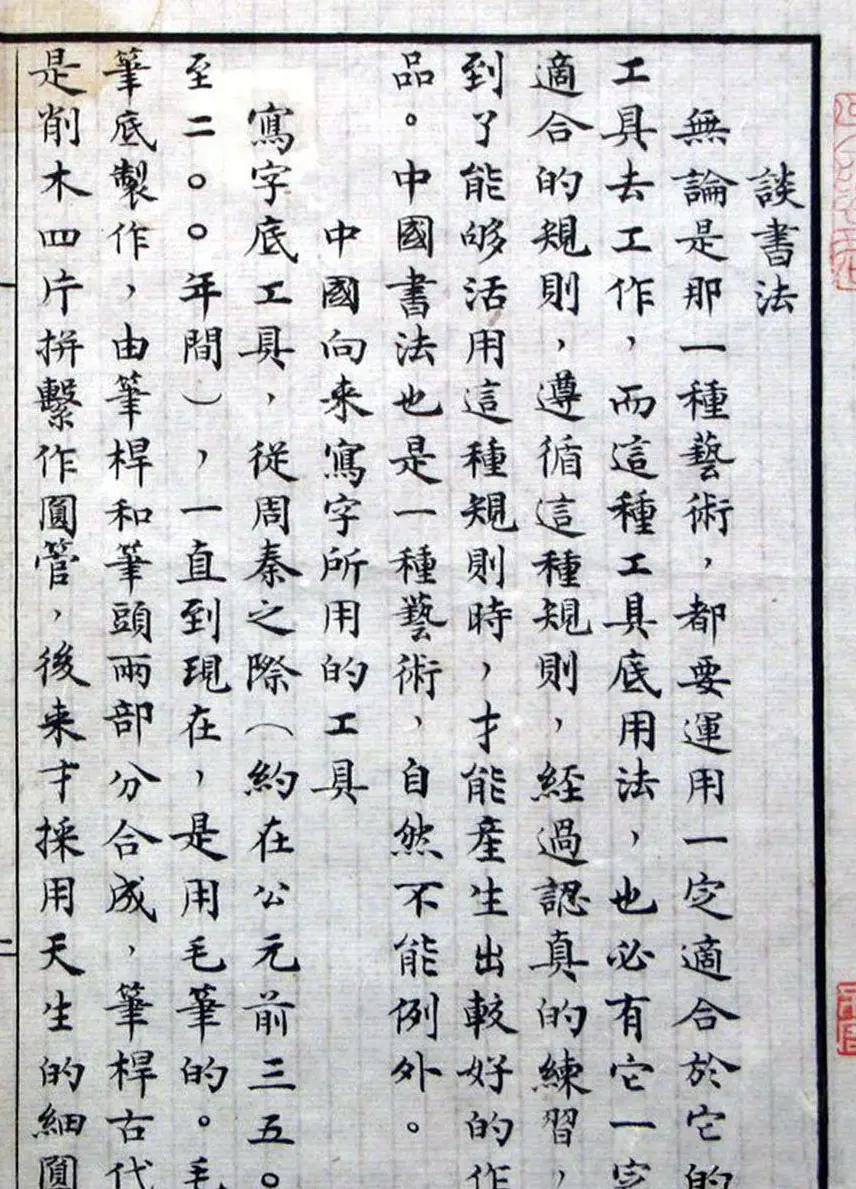 談書法
無論是那一種藝術，都要運用一定適合於它的
工具去工作，而這種工具底用法，也必有它一定
適合的規則，遵循這種規則，經過認真的練習，
到了能够活用這種規則時，才能產生出較好的作
品。中國書法也是一種藝術，自然不能例外。
中國向来寫字所用的工具
寫字底工具，從周秦之際（約在公元前三五〇
至二〇〇年間），一直到現在，是用毛筆的。毛
筆底製作，由筆桿和筆頭兩部分合成，筆桿古代
是削木四片拼繫作圓管，後来才採用天生的細圓